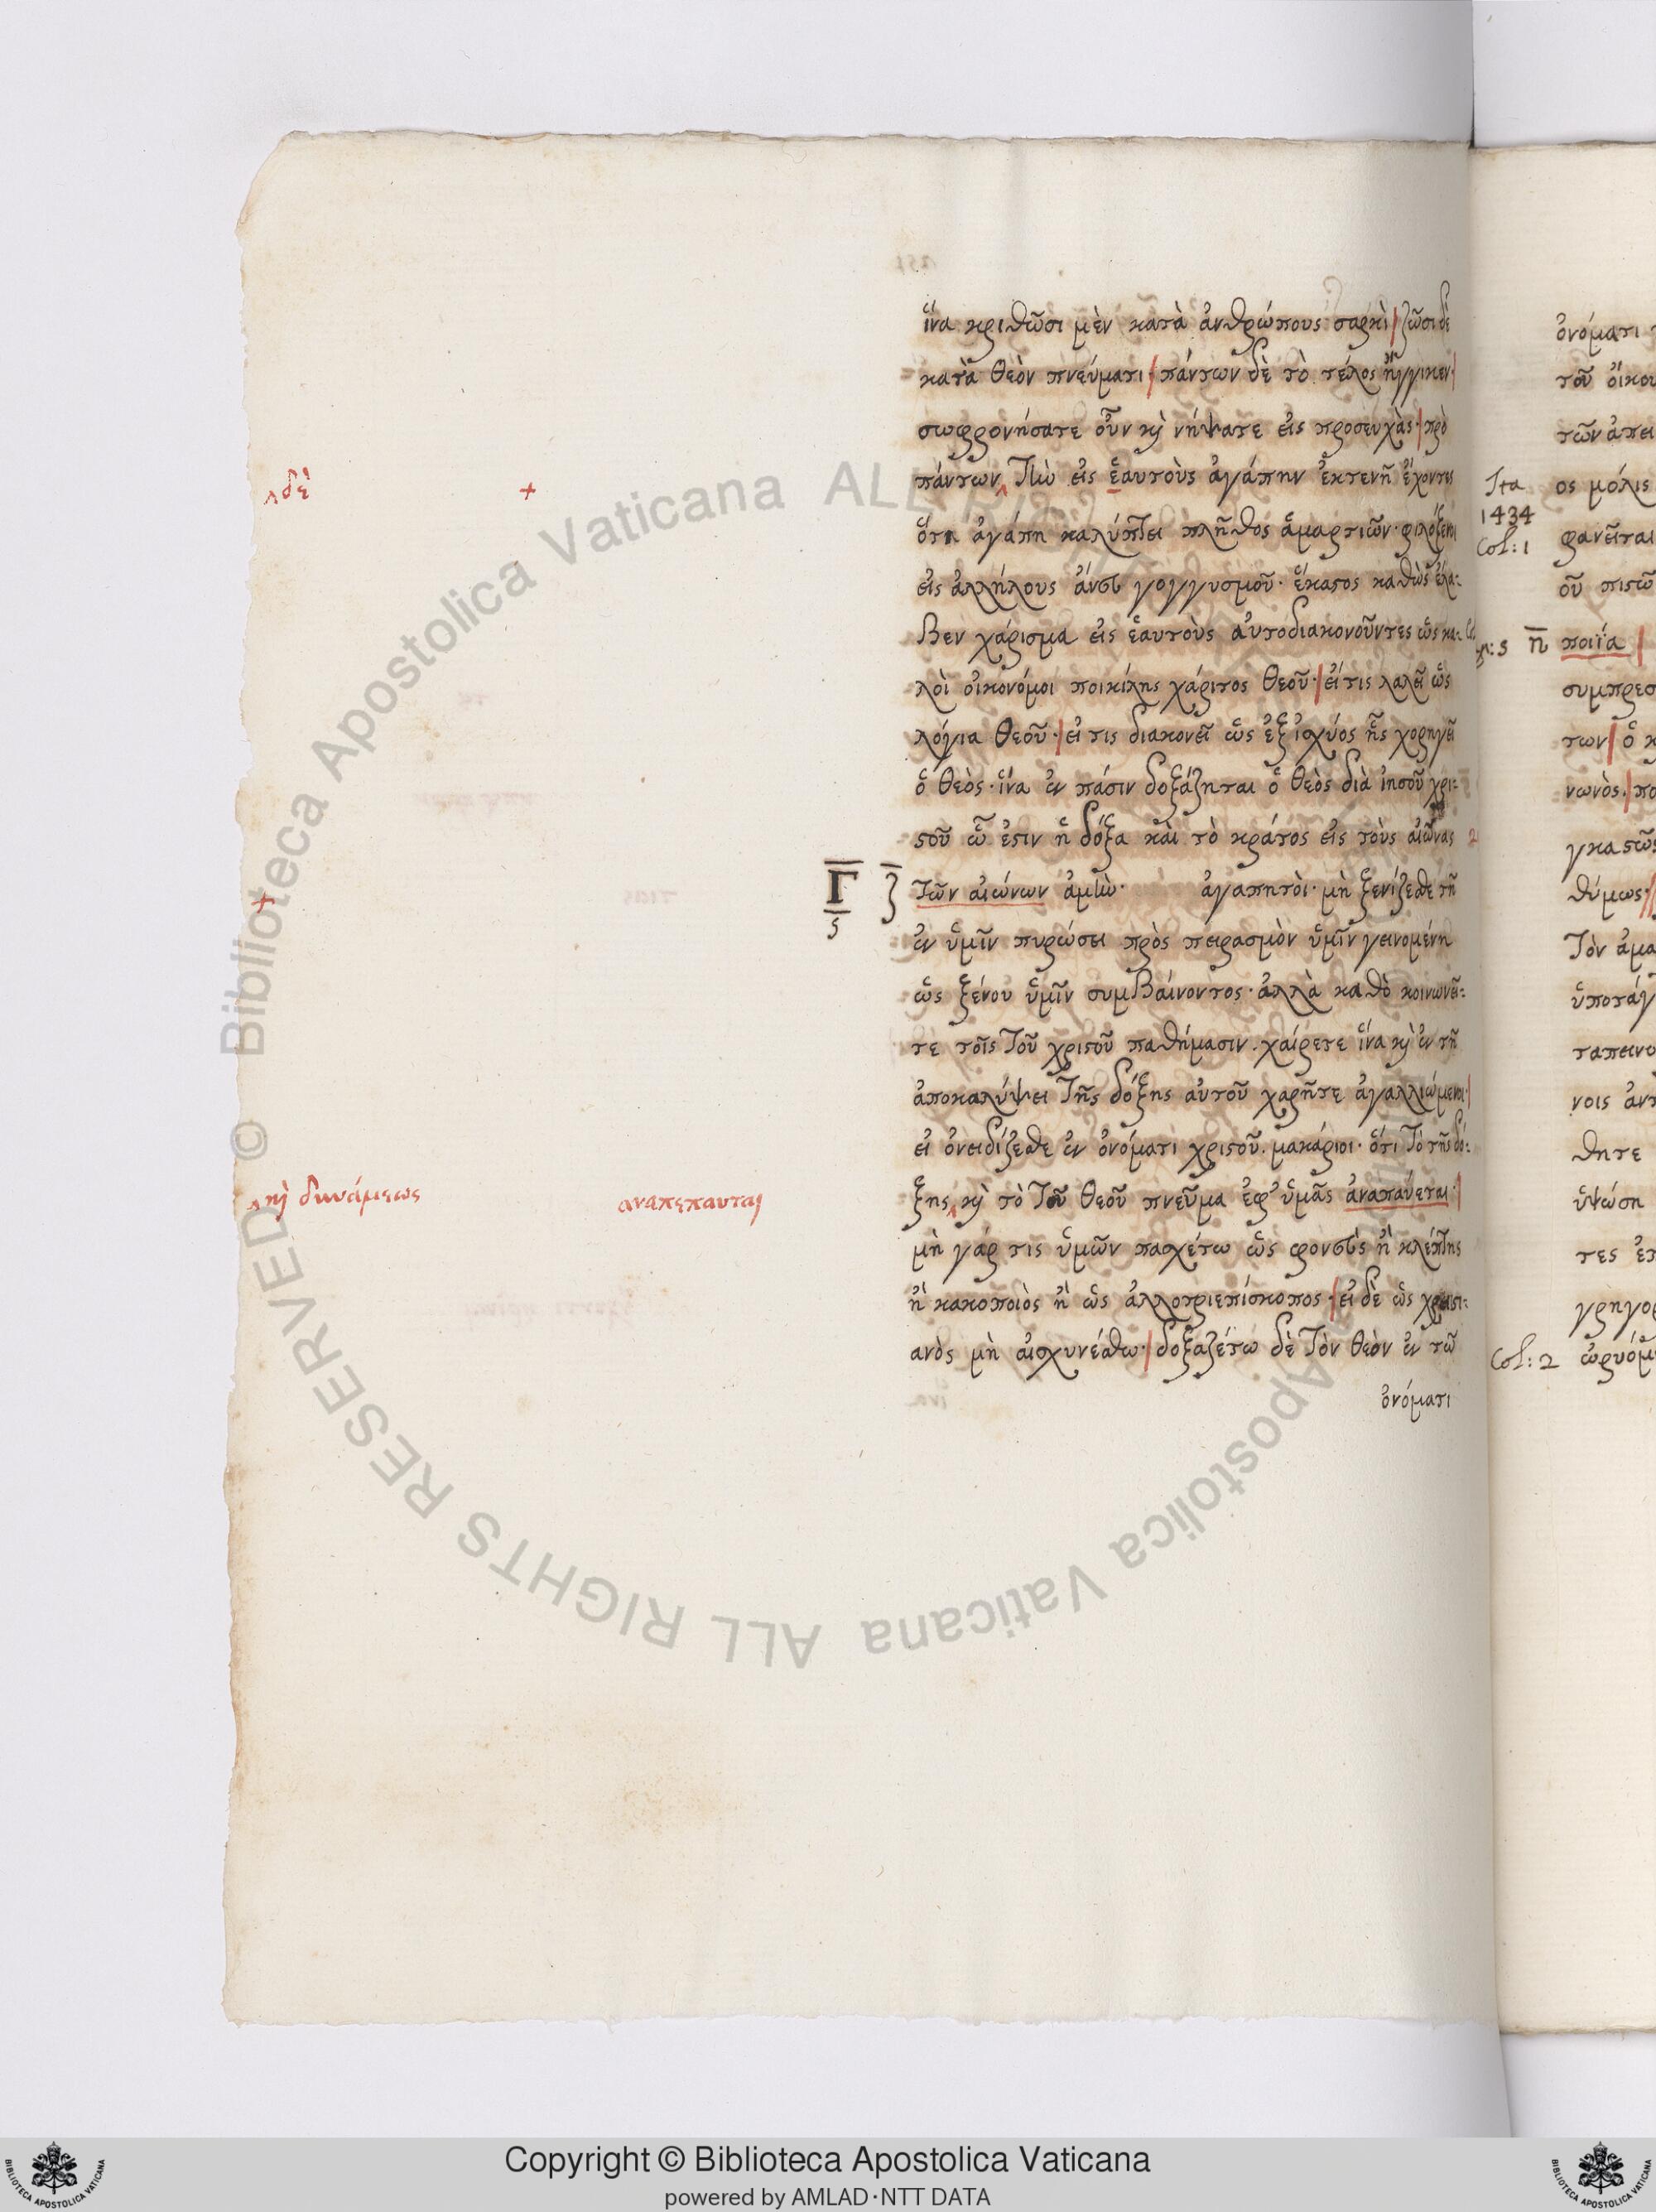 ἵνα κριθῶσι μὲν κατὰ ἀνθρώπους σαρκὶ ζῶσι δὲ
κατὰ θεὸν πνεύματι· πάντων δὲ τὸ τέλος ἤγγικεν·
σωφρονήσατε οὖν κὶ νήψατε εἰς προσευχὰς· πρὸ
‸δὲ +
πάντων‸ τὴν εἰς ἑαυτοὺς ἀγάπην ἐκτενῆ ἔχοντες
ὅτι ἀγάπη καλύπτει πλῆθος ἁμαρτιῶν· φιλόξενοι
εἰς ἀλλήλους ἄνευ γογγυσμοῦ· ἕκαστος καθὼς ἔλα-
βεν χάρισμα εἰς ἑαυτοὺς αὐτὸ διακονοῦντες ὡς κα-
λοὶ οἰκονόμοι ποικίλης χάριτος θεοῦ· εἴ τις λαλεῖ ὡς
λόγια θεοῦ· εἴ τις διακονεῖ ὡς ἐξ ἰσχύος ἧς χορηγεῖ
ὁ θεὸς· ἵνα ἐν πάσιν δοξάζηται ὁ θεὸς διὰ ἰησοῦ χρι-
στοῦ ᾧ ἐστιν ἡ δόξα καὶ τὸ κράτος εἰς τοὺς αἰῶνας
+ Γ
τῶν αἰώνων ἀμὴν· ἀγαπητοὶ· μὴ ξενίζεσθε τῇ
ἐν ὑμῖν πυρώσει πρὸς πειρασμὸν ὑμῖν γεινομένη
ὡς ξένου ὑμῖν συμβαίνοντος· ἀλλὰ καθὸ κοινωνεῖ-
τε τοῖς τοῦ χριστοῦ παθήμασιν. χαίρετε ἵνα κὶ ἐν τῇ
ἀποκαλύψει τῆς δόξης αὐτοῦ χαρῆτε ἀγαλλιώμενοι·
εἰ ὀνειδίζεσθε ἐν ὀνόματι χριστοῦ. μακάριοι· ὅτι τὸ τῆς δό-
‸κὶ δυνάμεως αναπεπαυται
ξης‸ κὶ τὸ τοῦ θεοῦ πνεῦμα ἐφ᾽ ὑμᾶς ἀναπαύεται·
μὴ γάρ τις ὑμῶν πασχέτω ὡς φονεὺς ἢ κλέπτης
ἢ κακοποιὸς ἢ ὡς ἀλλοτριεπίσκοπος· εἰ δὲ ὡς χρηστι-
ανὸς μὴ αἰσχυνέσθω· δοξαζέτω δὲ τὸν θεὸν ἐν τῷ
ὀνόματι
ὀνόματι
τοῦ οἴκου
τῶν ἀπει
Ita
1434
Col: 1
ος μόλις
φανεῖται
οὗ πιστῶ
ποιΐα
συμπρεσ
των ὁ κ
νωνὸς· πο
γκαστῶς
θύμως·
τὸν ἀμα
ὑποτάγ
ταπεινο
νοις ἀντ
θητε
ὑψώση
τες ἐπ
γρηγορ
Col: 2
ὠρυόμ
© Biblioteca Apostolica Vaticana ALL RIGHTS RESERVED
Copyright © Biblioteca Apostolica Vaticana
powered by AMLAD·NTT DATA